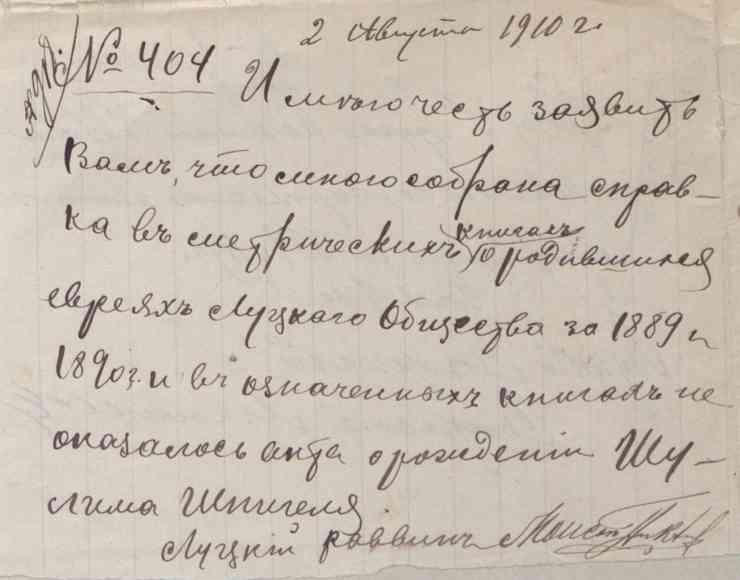 2 Августа 1910 г.
№ 404 Имѣю честь заявить
Вамъ, что мною собрана справ-
ка въ метрическихъ книгахъ о родившихся
евреяхъ Луцкаго Общества за 1889 и
1890 г. и въ означенныхъ книгахъ не
оказалось акта о рожденіи Шу-
лима Шпигеля.
Луцкій раввинъ